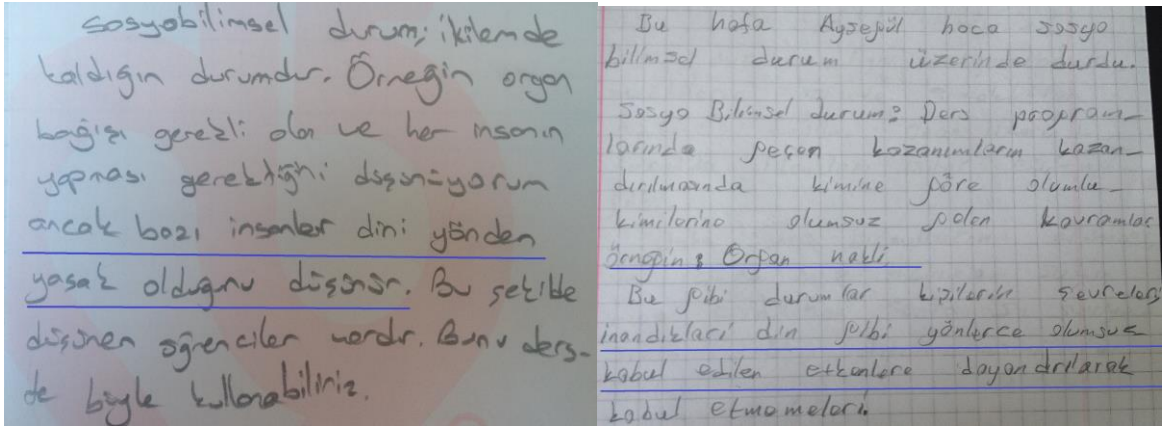 sosyobilimsel durum; ikilemde
kaldığın durumdur. Örneğin organ
bağışı gerekli olan ve her insanın
yapması gerektiğini düşünüyorum
ancak bazı insanlar dini yönden
yasak olduğunu düşünür. Bu şekilde
düşünen öğrenciler vardır. Bunu ders-
de böyle kullanabiliriz.
Bu hafa Ayşegül hoca sosyo
bilimsel durum üzerinde durdu.
Sosyo Bilimsel durum: Ders program-
larında geçen kazanımların kazan-
dırılmasında kimine göre olumlu
kimilerine olumsuz gelen kavramlar
örneğin: Organ nakli.
Bu gibi durumlar kişilerin çevreleri
inandıkları din gibi yönlerce olumsuz
kabul edilen etkenlere dayandırılarak
kabul etmemeleri.